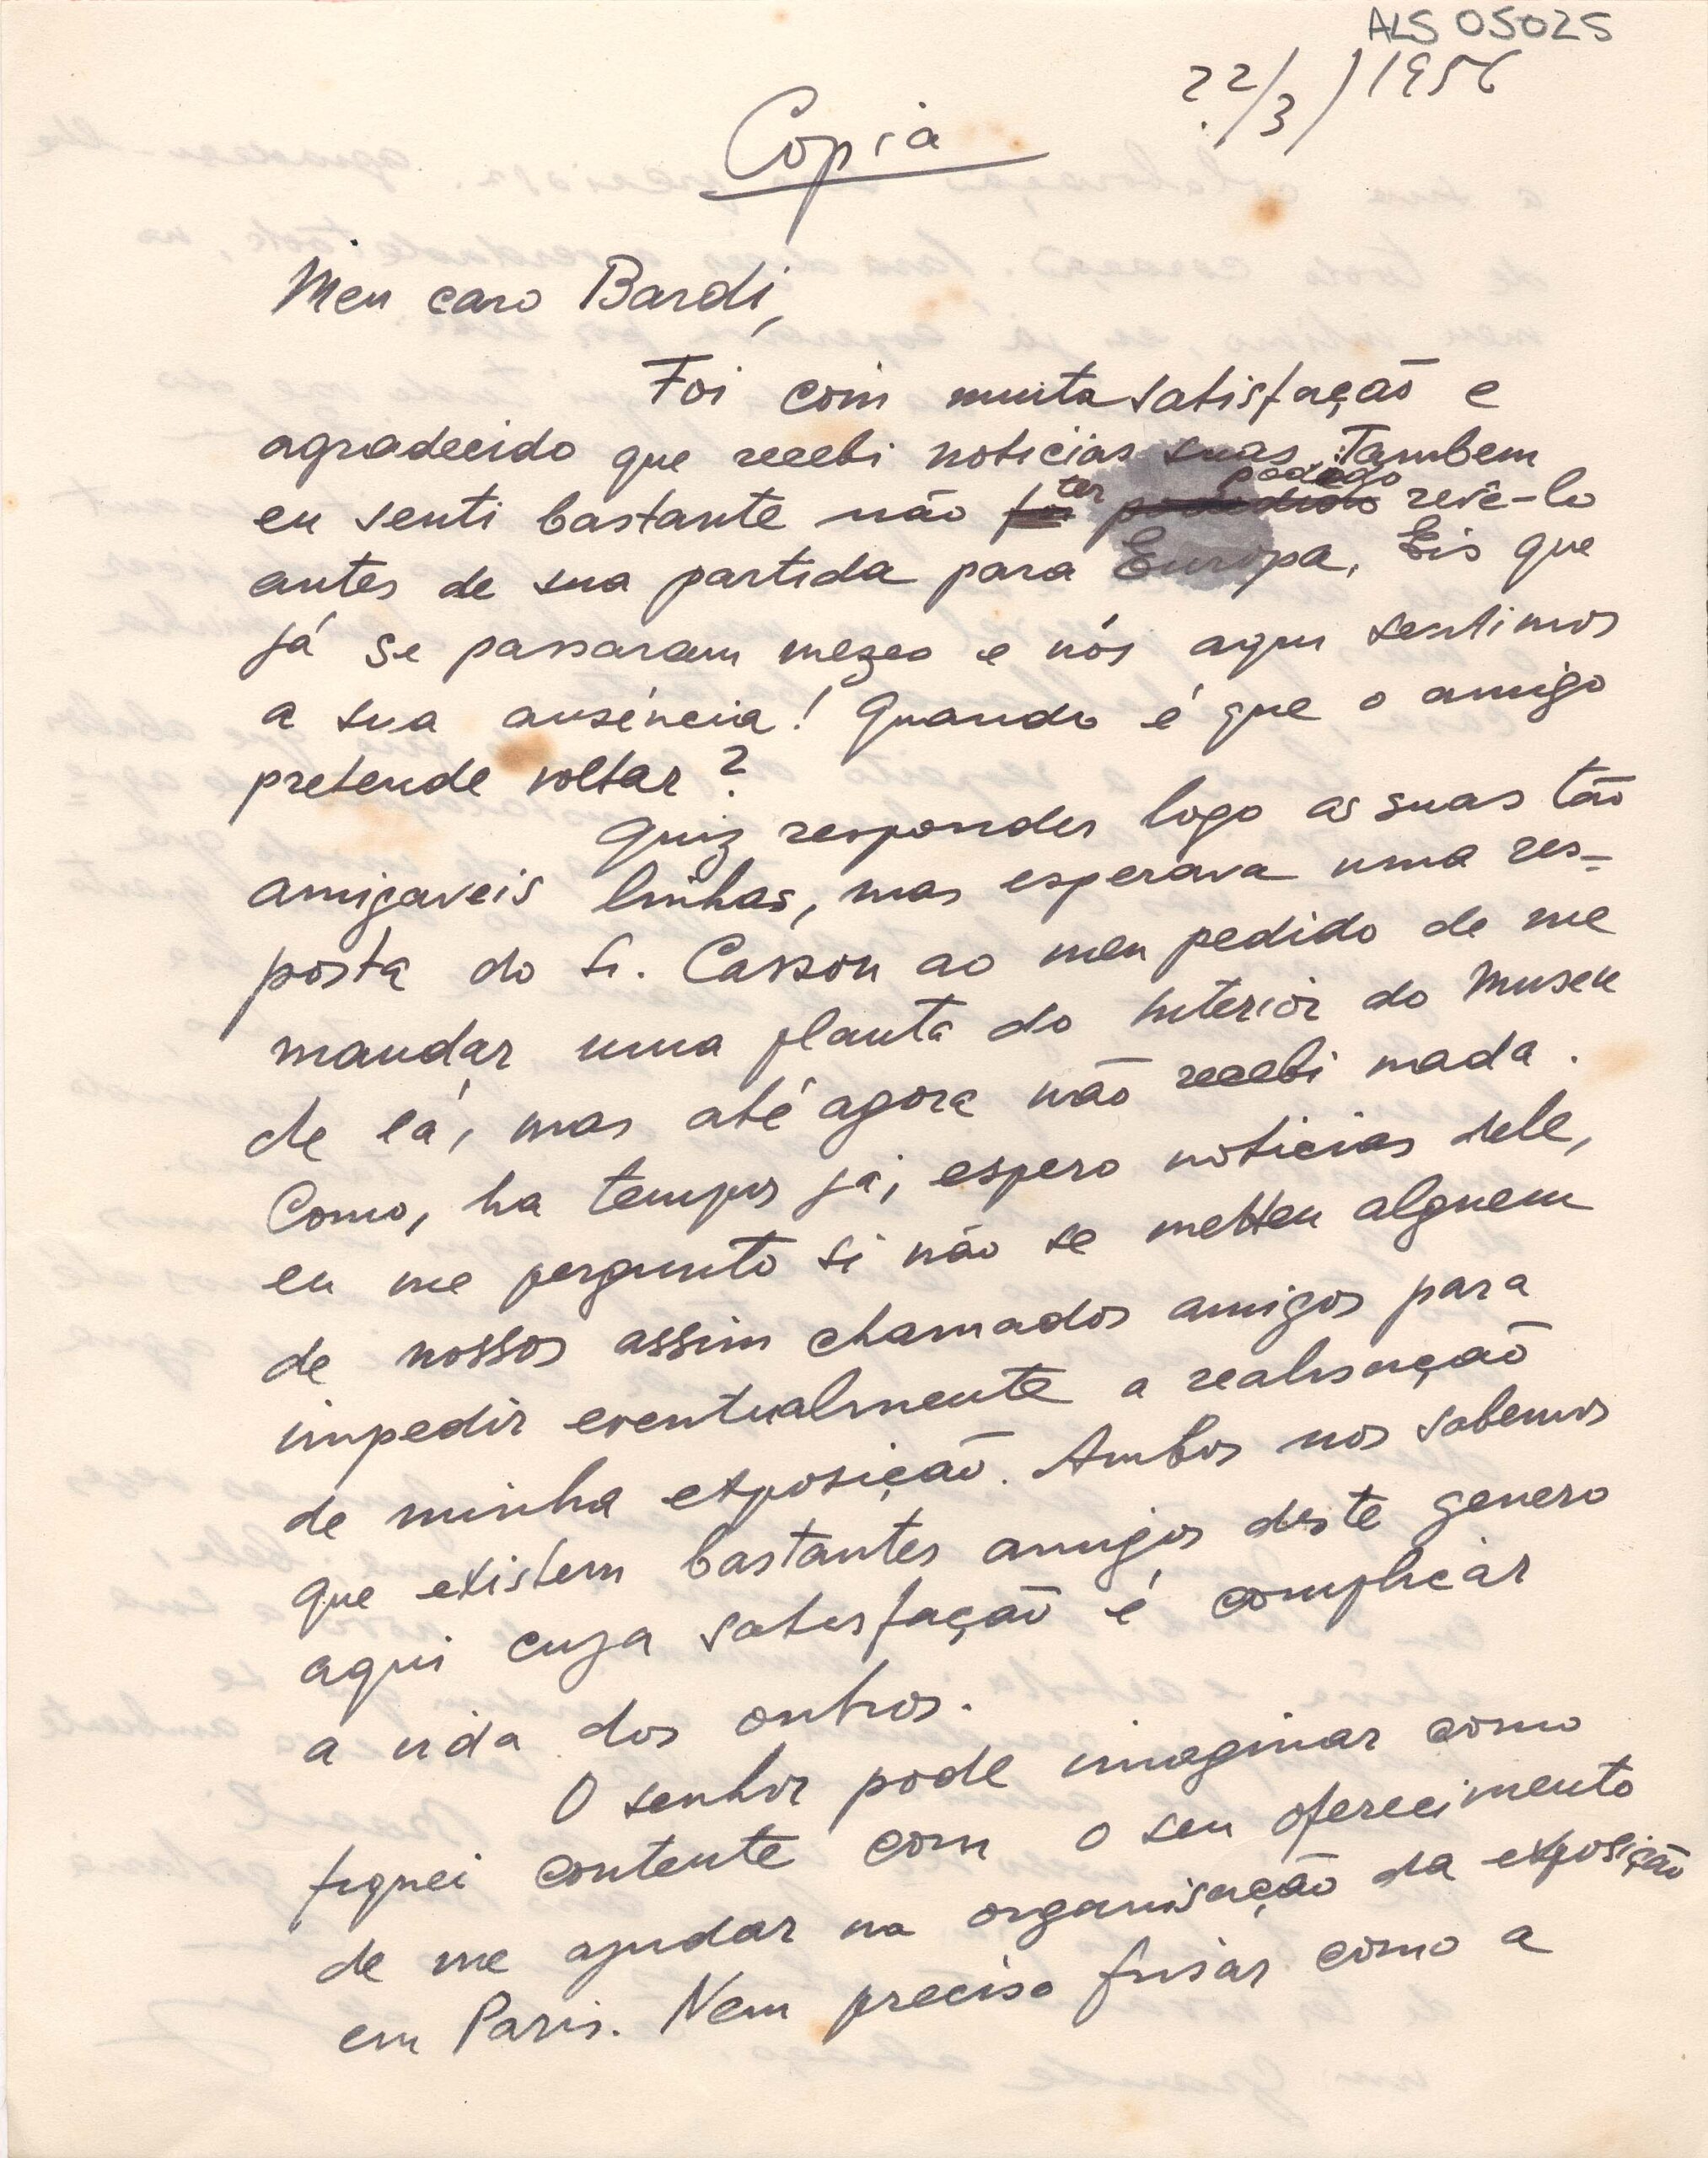 ALS 05025
22/3/1956
Copia
Meu caro Bardi,
Foi com muita satisfação e
agradecido que recebi noticias suas. Tambem
eu senti bastante não ter podido revê-lo
antes de sua partida para Europa. Eis que
já se passaram mezes e nós aqui sentimos
a sua ausência! Quando é que o amigo
pretende voltar?
Quiz responder logo as suas tão
amigaveis linhas, mas esperava uma res=
posta do Sr. Casson ao meu pedido de me
mandar uma planta do interior do Museu
de lá, mas até agora não recebi nada.
Como, ha tempos já, espero noticias dele,
eu me pergunto si não se metteu alguem
de nossos assim chamados amigos para
impedir eventualmente a realisação
de minha exposição. Ambos nos sabemos
que existem bastantes amigos deste genero
aqui cuja satisfação é complicar
a vida dos outros.
O senhor pode imaginar como
fiquei contente com o seu oferecimento
de me ajudar na organisação da exposição
em Paris. Nem preciso frisar como a